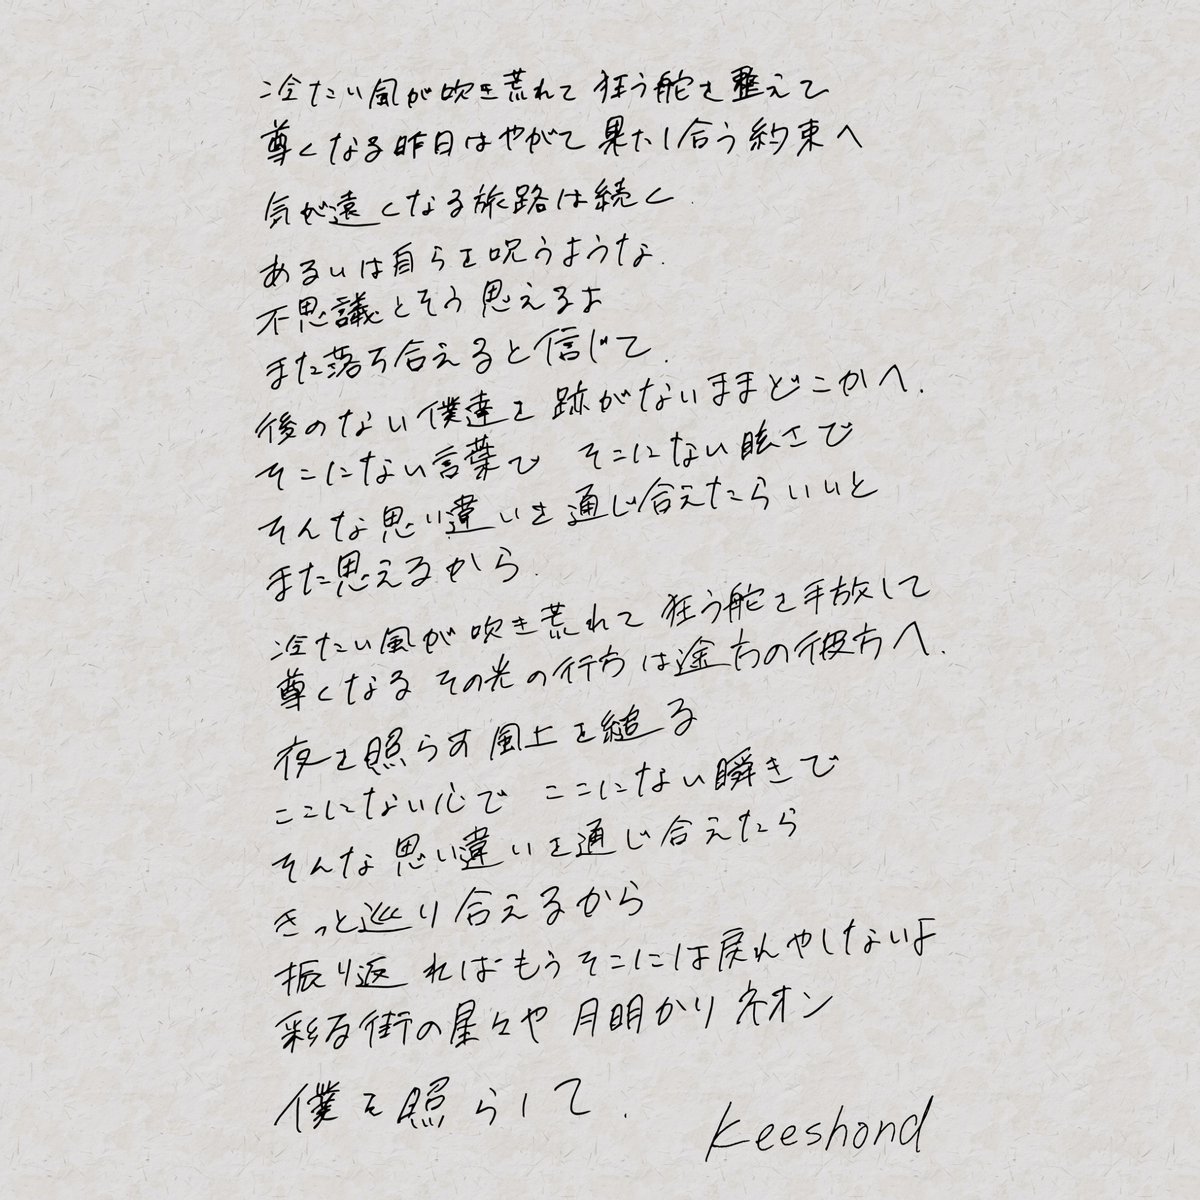 冷たい風が吹き荒れて 狂う舵を整えて
尊くなる昨日はやがて 果たし合う約束へ
気が遠くなる旅路は続く
あるいは自らを呪うような
不思議とそう思えるよ
また落ち合えると信じて
後のない僕達を 跡がないままどこかへ
そこにない言葉で そこにない眩さで
そんな思い違いを通じ合えたらいいと
また思えるから
冷たい風が吹き荒れて 狂う舵を手放して
尊くなる その光の行方は途方の彼方へ
夜を照らす風上を縋る
ここにない心で ここにない瞬きで
そんな思い違いを通じ合えたら
きっと巡り合えるから
振り返ればもうそこには戻れやしないよ
彩る街の星々や 月明かり ネオン
僕を照らして
Keeshond